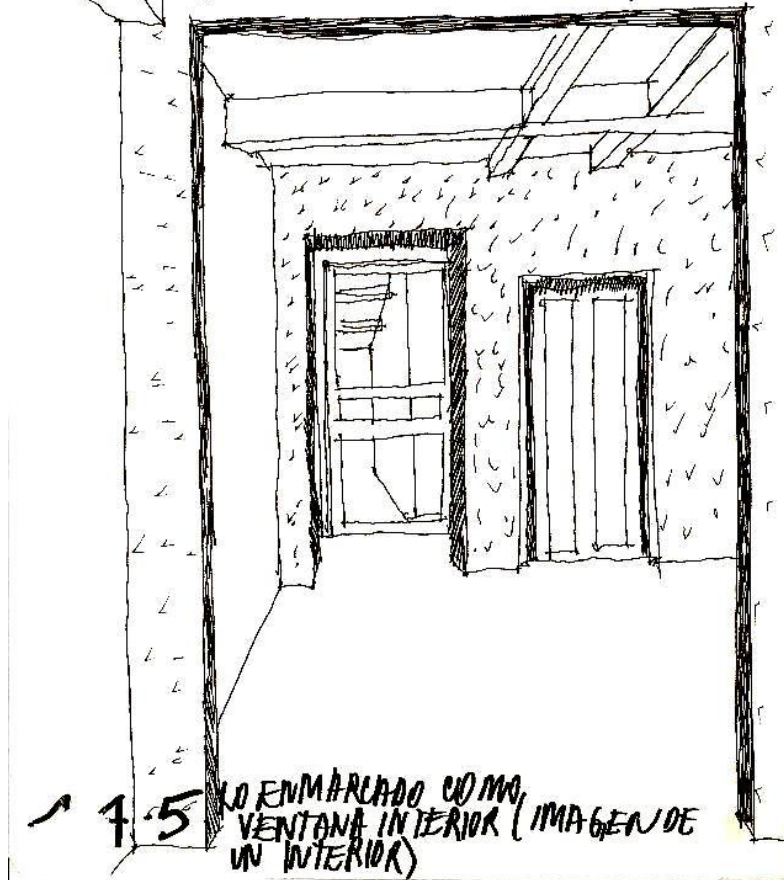 1.5 LO ENMARCADO COMO
VENTANA INTERIOR (IMAGEN DE
UN INTERIOR)